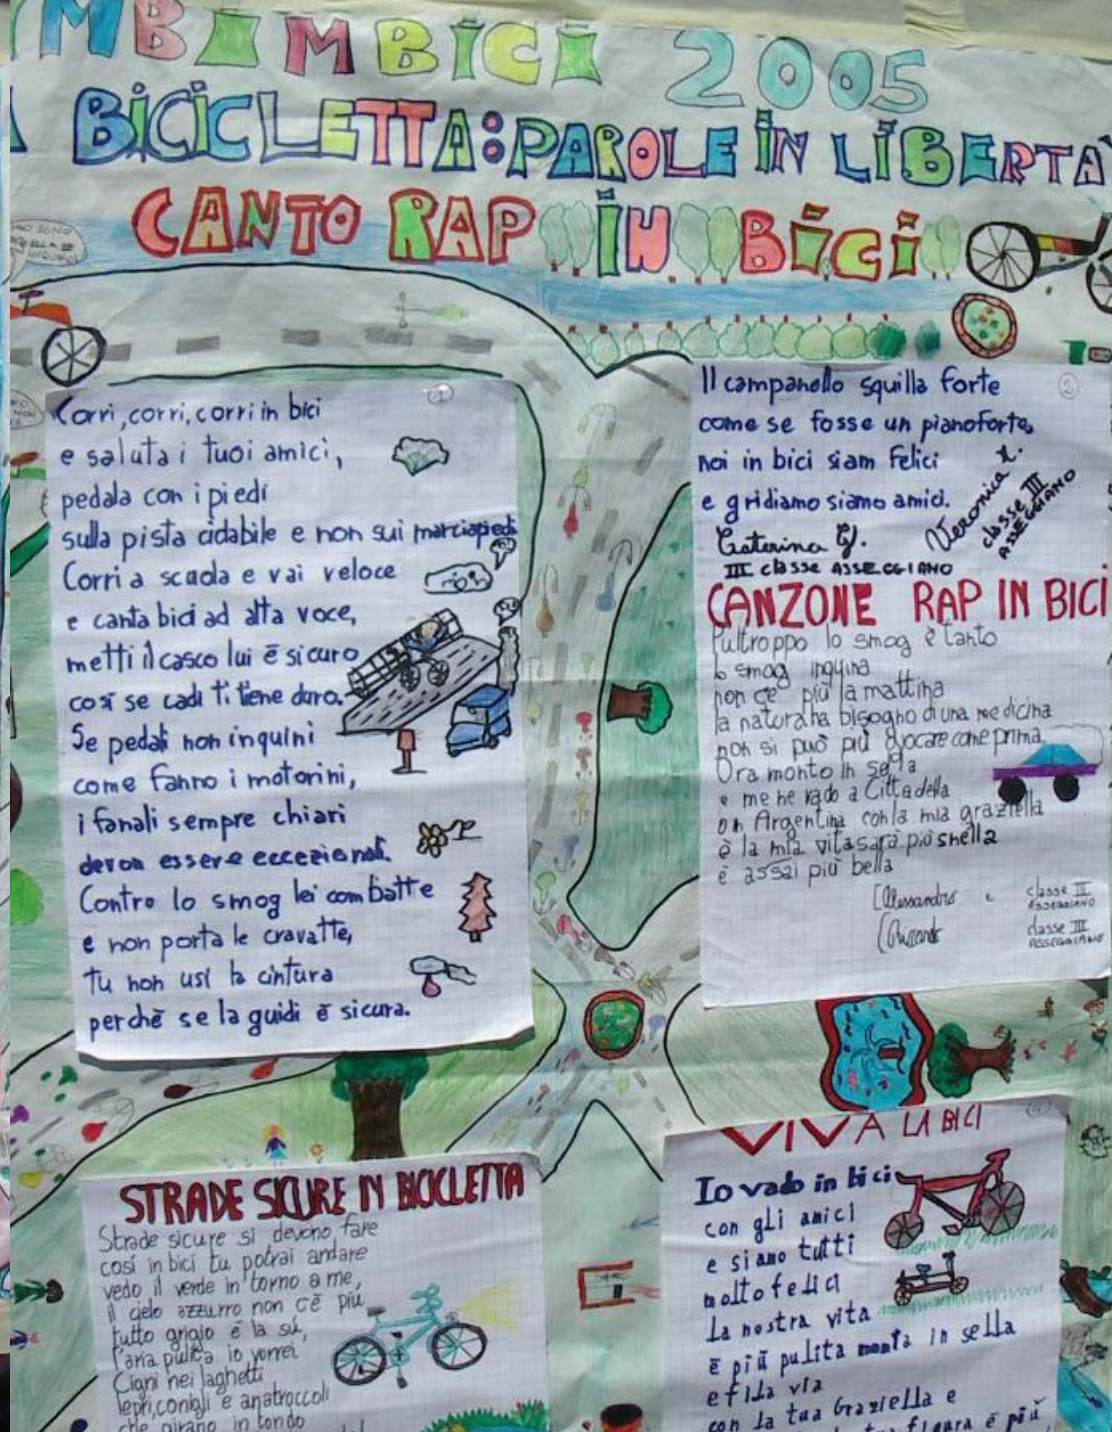 MBIMBICI 2005
A BICICLETTA: PAROLE IN LIBERTA'
CANTO RAP IN BICI
1
Corri, corri, corri in bici
e saluta i tuoi amici,
pedala con i piedi
sulla pista ciclabile e non sui marciapiedi
Corri a scuola e vai veloce
e canta bici ad alta voce,
metti il casco lui è sicuro
così se cadi ti tiene duro.
Se pedali non inquini
come fanno i motorini,
i fanali sempre chiari
devon essere eccezionali.
Contro lo smog lei combatte
e non porta le cravatte,
tu non usi la cintura
perchè se la guidi è sicura.
2
Il campanello squilla forte
come se fosse un pianoforte,
noi in bici siam felici
e gridiamo siamo amici.
Caterina G.
III classe ASSEGGIANO
Veronica
classe III
ASSEGGIANO
CANZONE RAP IN BICI
Pultroppo lo smog è tanto
lo smog inquina
non c'è più la mattina
la natura ha bisogno di una medicina
non si può più giocare come prima
Ora monto in sella
e me ne vado a Cittadella
on Argentina con la mia graziella
è la mia vita sarà più snella
è assai più bella
Alessandro e classe III
ASSEGGIANO
Riccardo classe III
ASSEGGIANO
STRADE SICURE IN BICICLETTA
Strade sicure si devono fare
così in bici tu potrai andare
vedo il verde in torno a me,
il cielo azzurro non c'è più
tutto grigio è la sù,
l'aria pulita io vorrei
Cigni nei laghetti
lepri, conigli e anatroccoli
che girano in tondo
VIVA LA BICI
Io vado in bici
con gli amici
e siamo tutti
molto felici
La nostra vita
è più pulita monta in sella
e fila via
con la tua Graziella e
figura è più